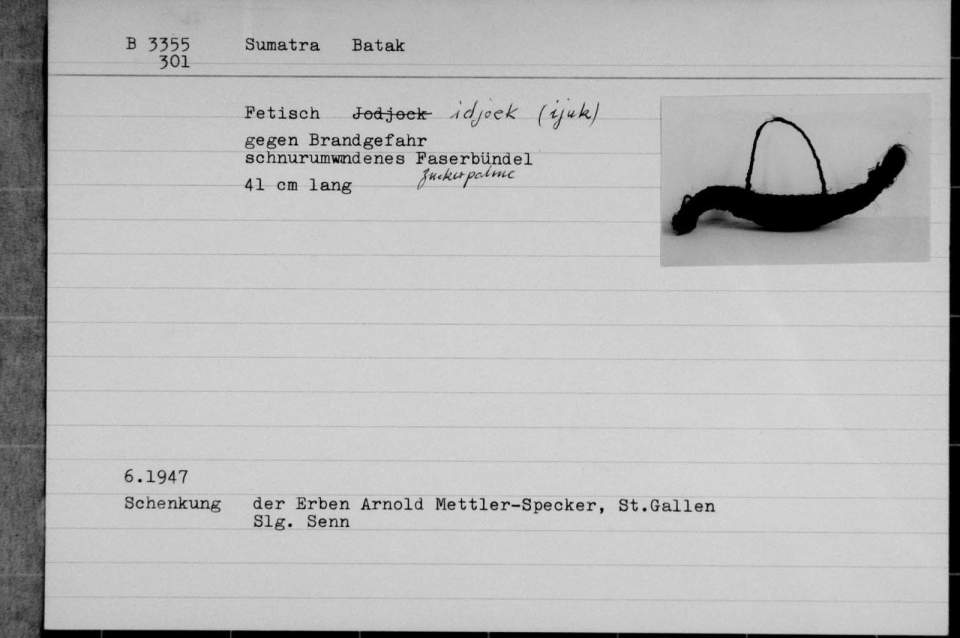 B 3355 Sumatra Batak
301
Fetisch Jodjock idjoek (ijuk)
gegen Brandgefahr
schnurumwndenes Faserbündel
Zuckerpalme
41 cm lang
6.1947
Schenkung der Erben Arnold Mettler-Specker, St.Gallen
Slg. Senn